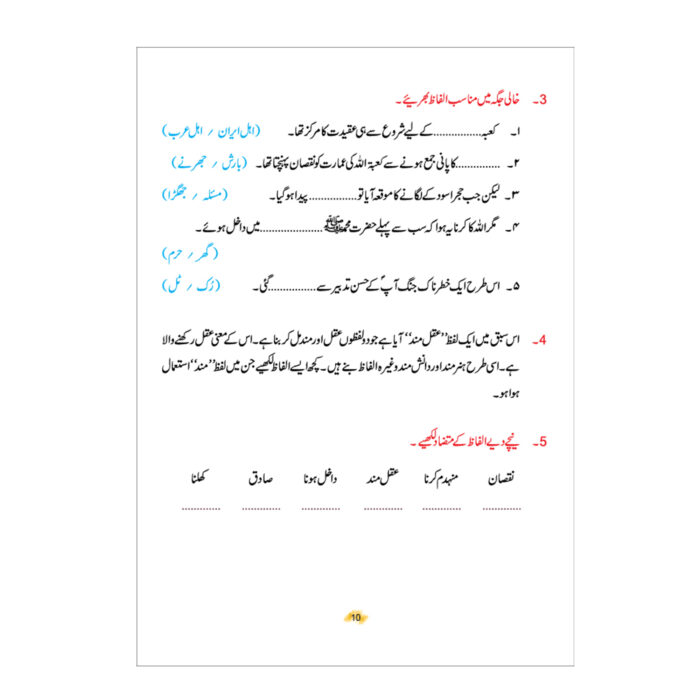 3۔ خالی جگہ میں مناسب الفاظ بھریئے۔
۱۔ کعبہ................کے لیے شروع سے ہی عقیدت کا مرکز تھا۔ (اہل ایران / اہل عرب)
۲۔ ...............کا پانی جمع ہونے سے کعبۃ اللہ کی عمارت کو نقصان پہنچتا تھا۔ (بارش / جھرنے)
۳۔ لیکن جب حجر اسود کے لگانے کا موقعہ آیا تو................ پیدا ہو گیا۔ (مسئلہ / جھگڑا)
۴۔ مگر اللہ کا کرنا یہ ہوا کہ سب سے پہلے حضرت محمدﷺ.....................میں داخل ہوئے۔
(گھر / حرم)
۵۔ اس طرح ایک خطرناک جنگ آپؐ کے حسن تدبیر سے................گئی۔ (رُک / ٹل)
4۔ اس سبق میں ایک لفظ ’’عقل مند‘‘ آیا ہے جو دو لفظوں عقل اور مند مل کر بنا ہے۔ اس کے معنی عقل رکھنے والا
ہے۔ اسی طرح ہنر مند اور دانش مند وغیرہ الفاظ بنے ہیں۔ کچھ ایسے الفاظ لکھیے جن میں لفظ ’’مند‘‘ استعمال
ہوا ہو۔
5۔ نیچے دیے الفاظ کے متضاد لکھیے۔
نقصان منہدم کرنا عقل مند داخل ہونا صادق کھلنا
............. ............. ............. ............. ............. .............
10